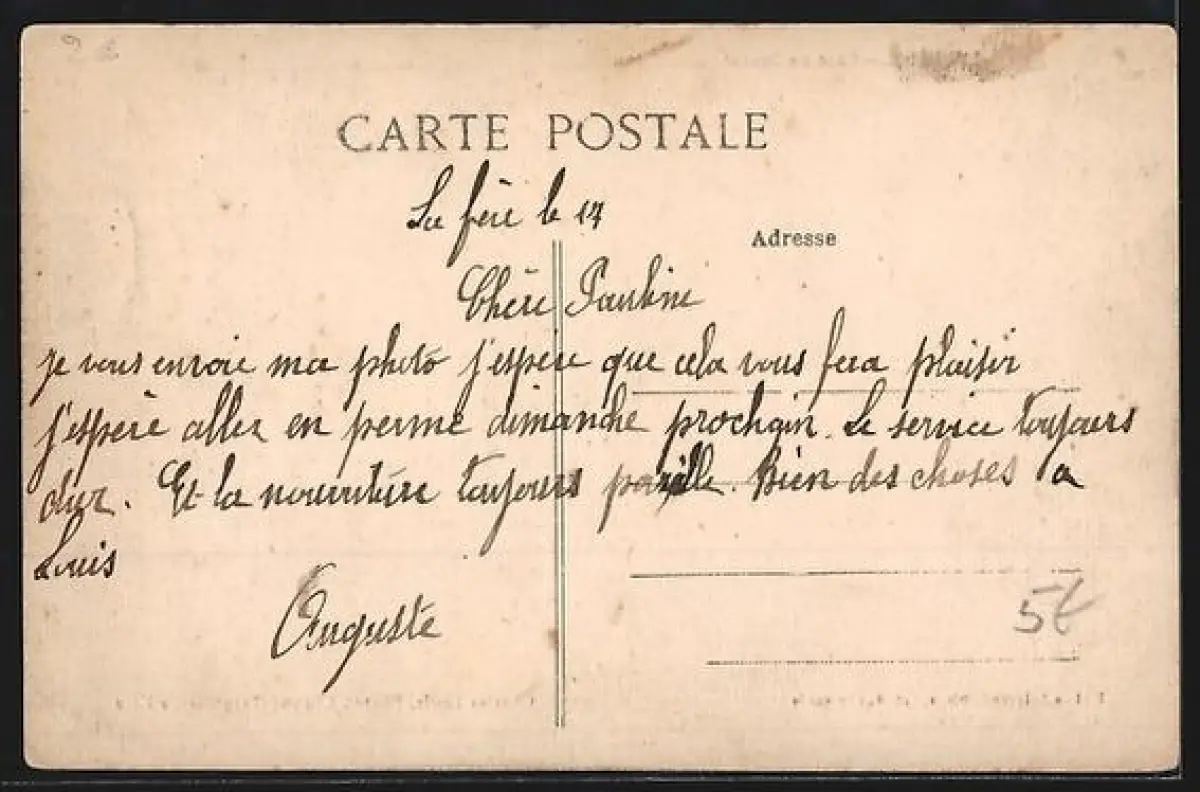 CARTE POSTALE
La fère le 14
Adresse
Chère Pauline
je vous envoie ma photo j'espère que cela vous fera plaisir
j'espère aller en perme dimanche prochain. Le service toujours
dur. Et la nourriture toujours pareille. Bien des choses a
Luis
Auguste
5€